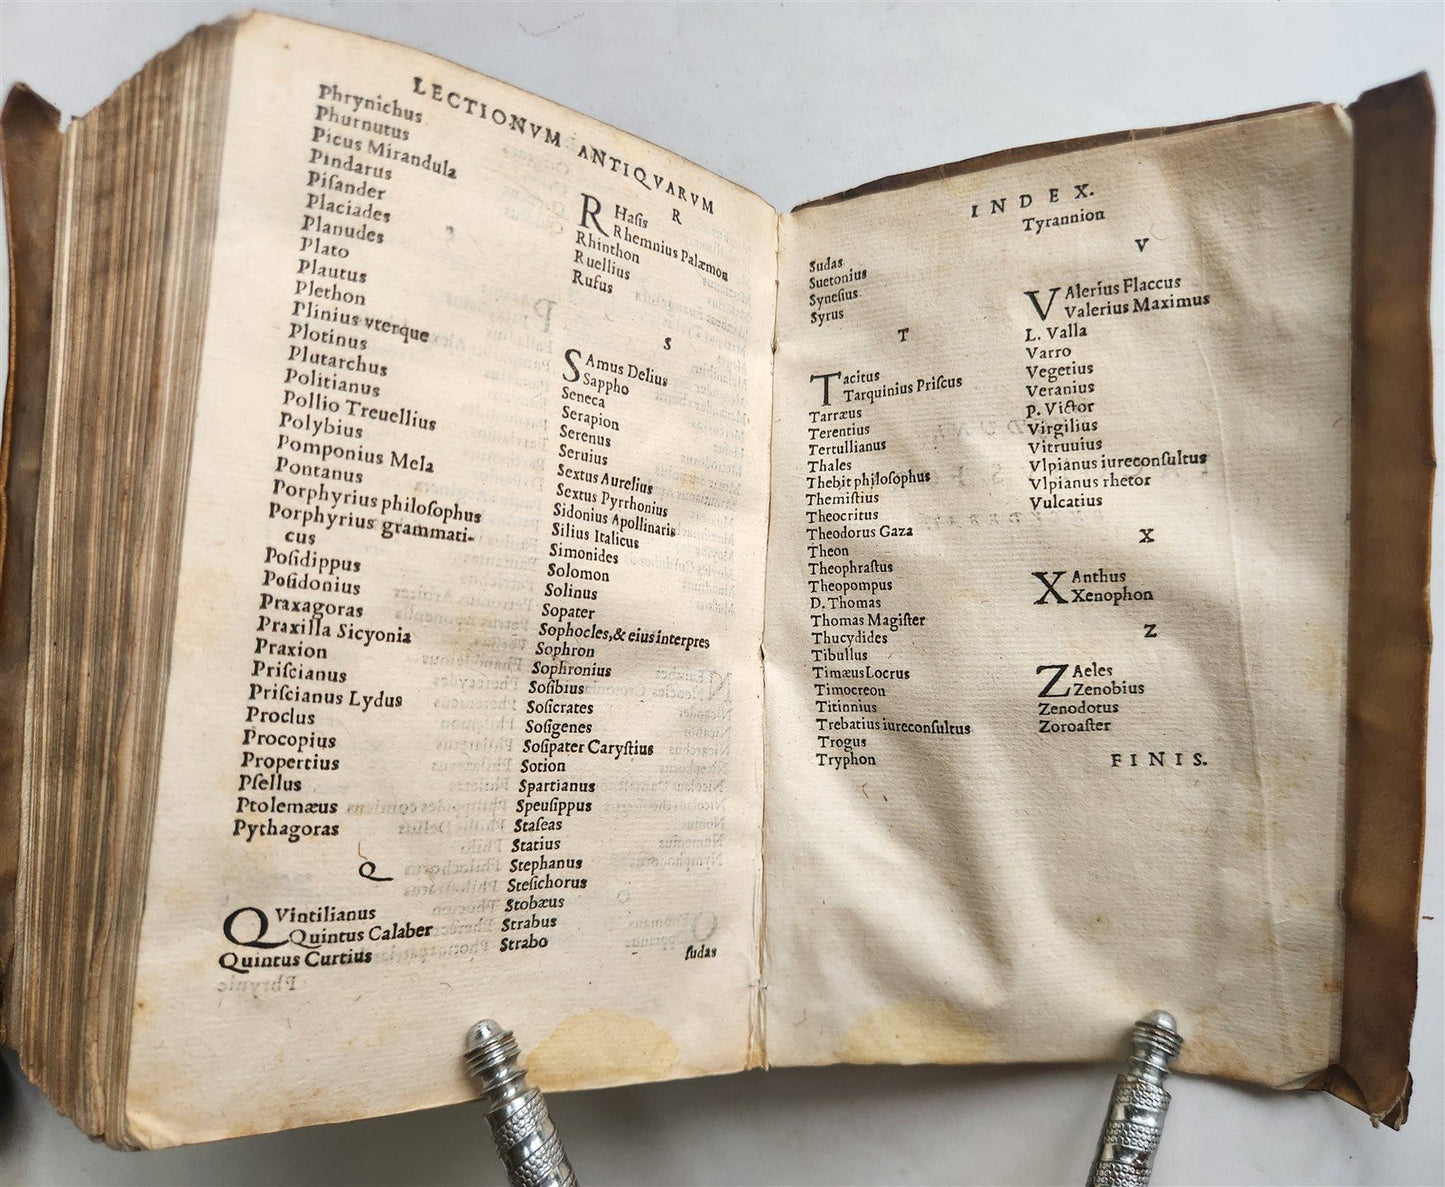 LECTIONVM ANTIQVARVM
Phrynichus
Phurnutus
Picus Mirandula
Pindarus
Piſander
Placiades
Planudes
Plato
Plautus
Plethon
Plinius vterque
Plotinus
Plutarchus
Politianus
Pollio Treuellius
Polybius
Pomponius Mela
Pontanus
Porphyrius philoſophus
Porphyrius grammati-
cus
Poſidippus
Poſidonius
Praxagoras
Praxilla Sicyonia
Praxion
Priſcianus
Priſcianus Lydus
Proclus
Procopius
Propertius
Pſellus
Ptolemæus
Pythagoras
Q
QVintilianus
Quintus Calaber
Quintus Curtius
R
RHaſis
Rhemnius Palæmon
Rhinthon
Ruellius
Rufus
S
SAmus Delius
Sappho
Seneca
Serapion
Serenus
Seruius
Sextus Aurelius
Sextus Pyrrhonius
Sidonius Apollinaris
Silius Italicus
Simonides
Solomon
Solinus
Sopater
Sophocles,& eius interpres
Sophron
Sophronius
Soſibius
Soſicrates
Soſigenes
Soſipater Caryſtius
Sotion
Spartianus
Speuſippus
Staſeas
Statius
Stephanus
Steſichorus
Stobæus
Strabus
Strabo
ſudas
INDEX.
Sudas
Suetonius
Syneſius
Syrus
T
Tacitus
Tarquinius Priſcus
Tarræus
Terentius
Tertullianus
Thales
Thebit philoſophus
Themiſtius
Theocritus
Theodorus Gaza
Theon
Theophraſtus
Theopompus
D. Thomas
Thomas Magiſter
Thucydides
Tibullus
Timæus Locrus
Timocreon
Titinnius
Trebatius iureconſultus
Trogus
Tryphon
Tyrannion
V
VAlerius Flaccus
Valerius Maximus
L. Valla
Varro
Vegetius
Veranius
P. Victor
Virgilius
Vitruuius
Vlpianus iureconſultus
Vlpianus rhetor
Vulcatius
X
XAnthus
Xenophon
Z
ZAeles
Zenobius
Zenodotus
Zoroaſter
FINIS.